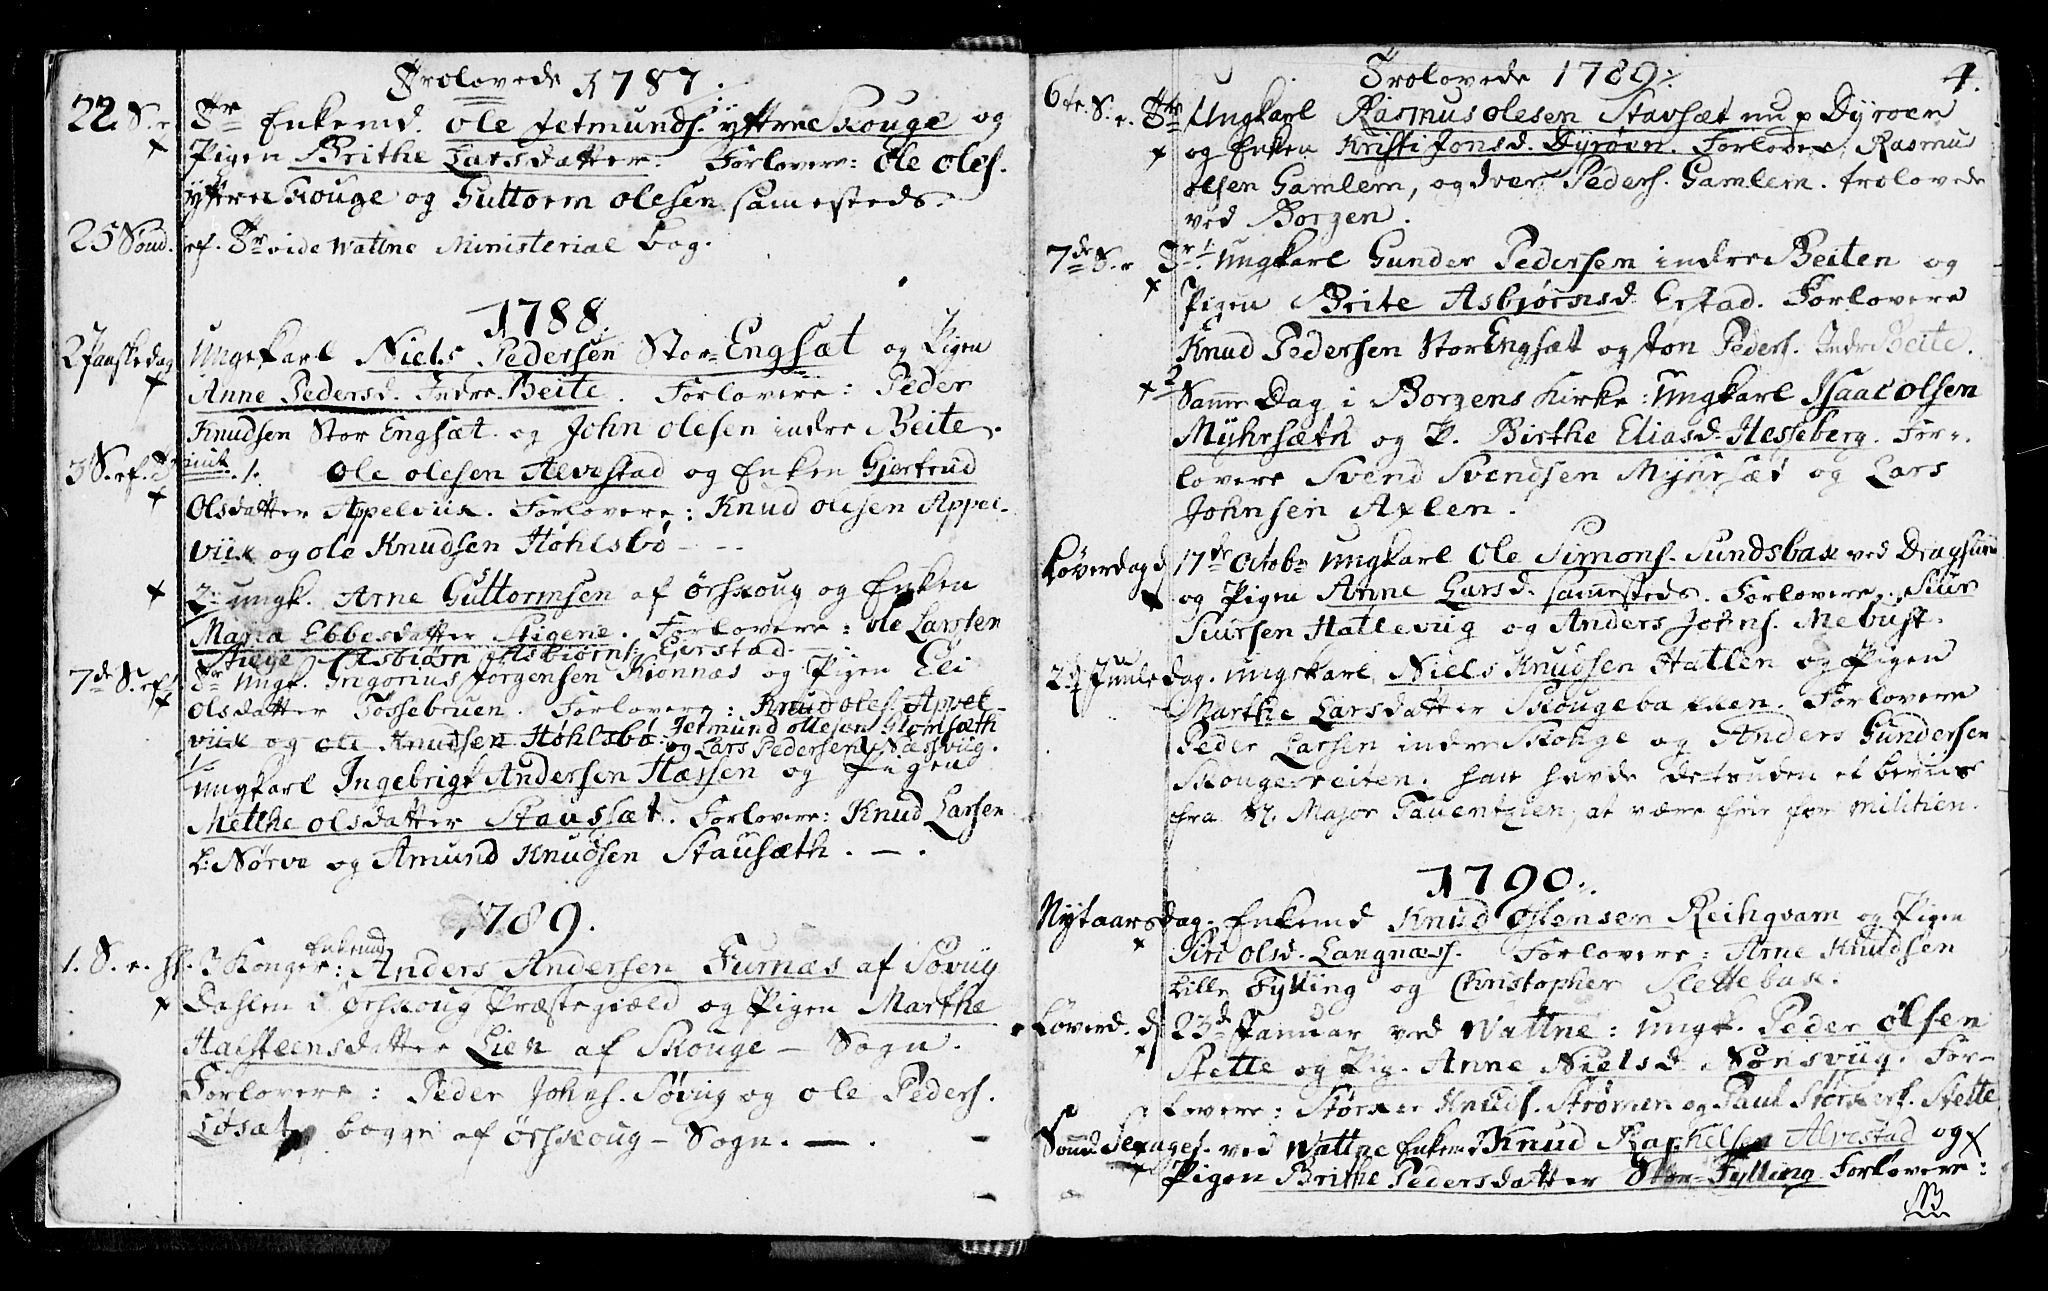 Trolovede 1787.
22 S. e. Tr Enkemd. Ole Jetmunds. yttre Skouge og
Pigen Brithe Larsdatter. Forlovere: Ole Oles.
yttre Skouge og Guttorm Olesen samesteds.
25 Sond. ef. Tr vide Wattne Ministerial bog.
1788.
2 Paaskedag Ungekarl Niels Pedersen Stor-Engsæt og Pigen
Anne Pedersd. Indre Beite. Forlovere: Peder
Knudsen Stor Engsæt og John Olesen indre Beite.
3 S. ef. Trinit. 1. Ole Olesen Alvestad og Enken Gjertrud
Olsdatter Appelviik. Forlovere: Knud Olesen Appel-
viik og Ole Knudsen Høhlsbø - - -
2. ungk. Arne Guttormsen af Ørskoug og Enken
Maria Ebbesdatter Stigene. Forlovere: Ole Larsten
Stiege Asbiørn Asbiørns. Gierstad.
7de S. ef. Tr Ungk. Gregorius Jorgensen Kionnæs og Pigen Eli
Olsdatter Fossebruen. Forlovere: Knud Oles. Appel-
viik og Ole Knudsen Høhlsbø: Jetmund Olesen Glomsæth
og Lars Pedersen Næssviig.
Ungkarl Ingebrigt Andersen Hæssen og Pigen
Metthe Olsdatter Stavssæt. Forlovere: Knud Larsen
L: Nørve og Amund Knudsen Stausæth. - .
1789.
1. S. e. H. 3 Konger: Enkemd Anders Andersen Furnæs af Søviig
Dahlen i Ørskoug Præstegiæld og Pigen Marthe
Halsteensdatter Lien af Skouge - Sogn.
Forlovere: Peder Johns. Søviig og Ole Peders.
Løsæt, begge af Ørskoug - Sogn. - .
Trolovede 1789. 4.
6te S. e. Tr Ungkarl Rasmus Olesen Stavsæt nu p Dyrøen
og Enken Kristi Jonsd. Dyrøen. Forlover Rasmus
Olsen Gamlem, og Iver Peders. Gamlem. trolovede
ved Borgen.
7de S. e Tr 1. Ungkarl Gunder Pedersen indre Beiten og
Pigen Brite Asbjørnsd. Erstad. Forlovere
Knud Pedersen Stor Engsæt og Jon Peders. Indre Beite.
2 Samme Dag i Borgens Kirke: Ungkarl Isaac Olsen
Myhrsæth og P. Birthe Eliasd. Hesseberg. For-
lovere Svend Svendsen Myhrsæt og Lars
Johnsen Axlen.
Løverdag d 17de Octobr Ungkarl Ole Simons. Sundsbak ved Dragsund
og Pigen Anne Larsd. sammesteds. Forlovere. Siur
Siursen Hatleviig og Anders Johns. Mebust.
2d Juuledag. Ungkarl Niels Knudsen Hatlen og Pigen
Marthe Larsdatter Skougebakken. Forlovere
Peder Larsen indre Skouge og Anders Gundersen
Skougesreiten. han havde desuden et beviis
fra H. Major Tauentzien, at være frie for Militien.
1790.
Nytaarsdag. Enkemd Knud Ostensen Reihgvam og Pigen
Siri Olsd. Langnæss. Forlovere: Arne Knudsen
Lille Fylling og Christopher Slettebak.
Løverd. d 23d Januar ved Wattne: ungk. Peder Olsen
Stette og Pig. Anne Nielsd. Sønsviig. For-
lovere: Størker Knuds. Strømen og Paul Størkers. Stette
Sond. Sexages. ved Wattne Enkemd Knud Raphelsen Alvestad og
Pigen Brithe Pedersdatter Stor-Fylling Forlovere: